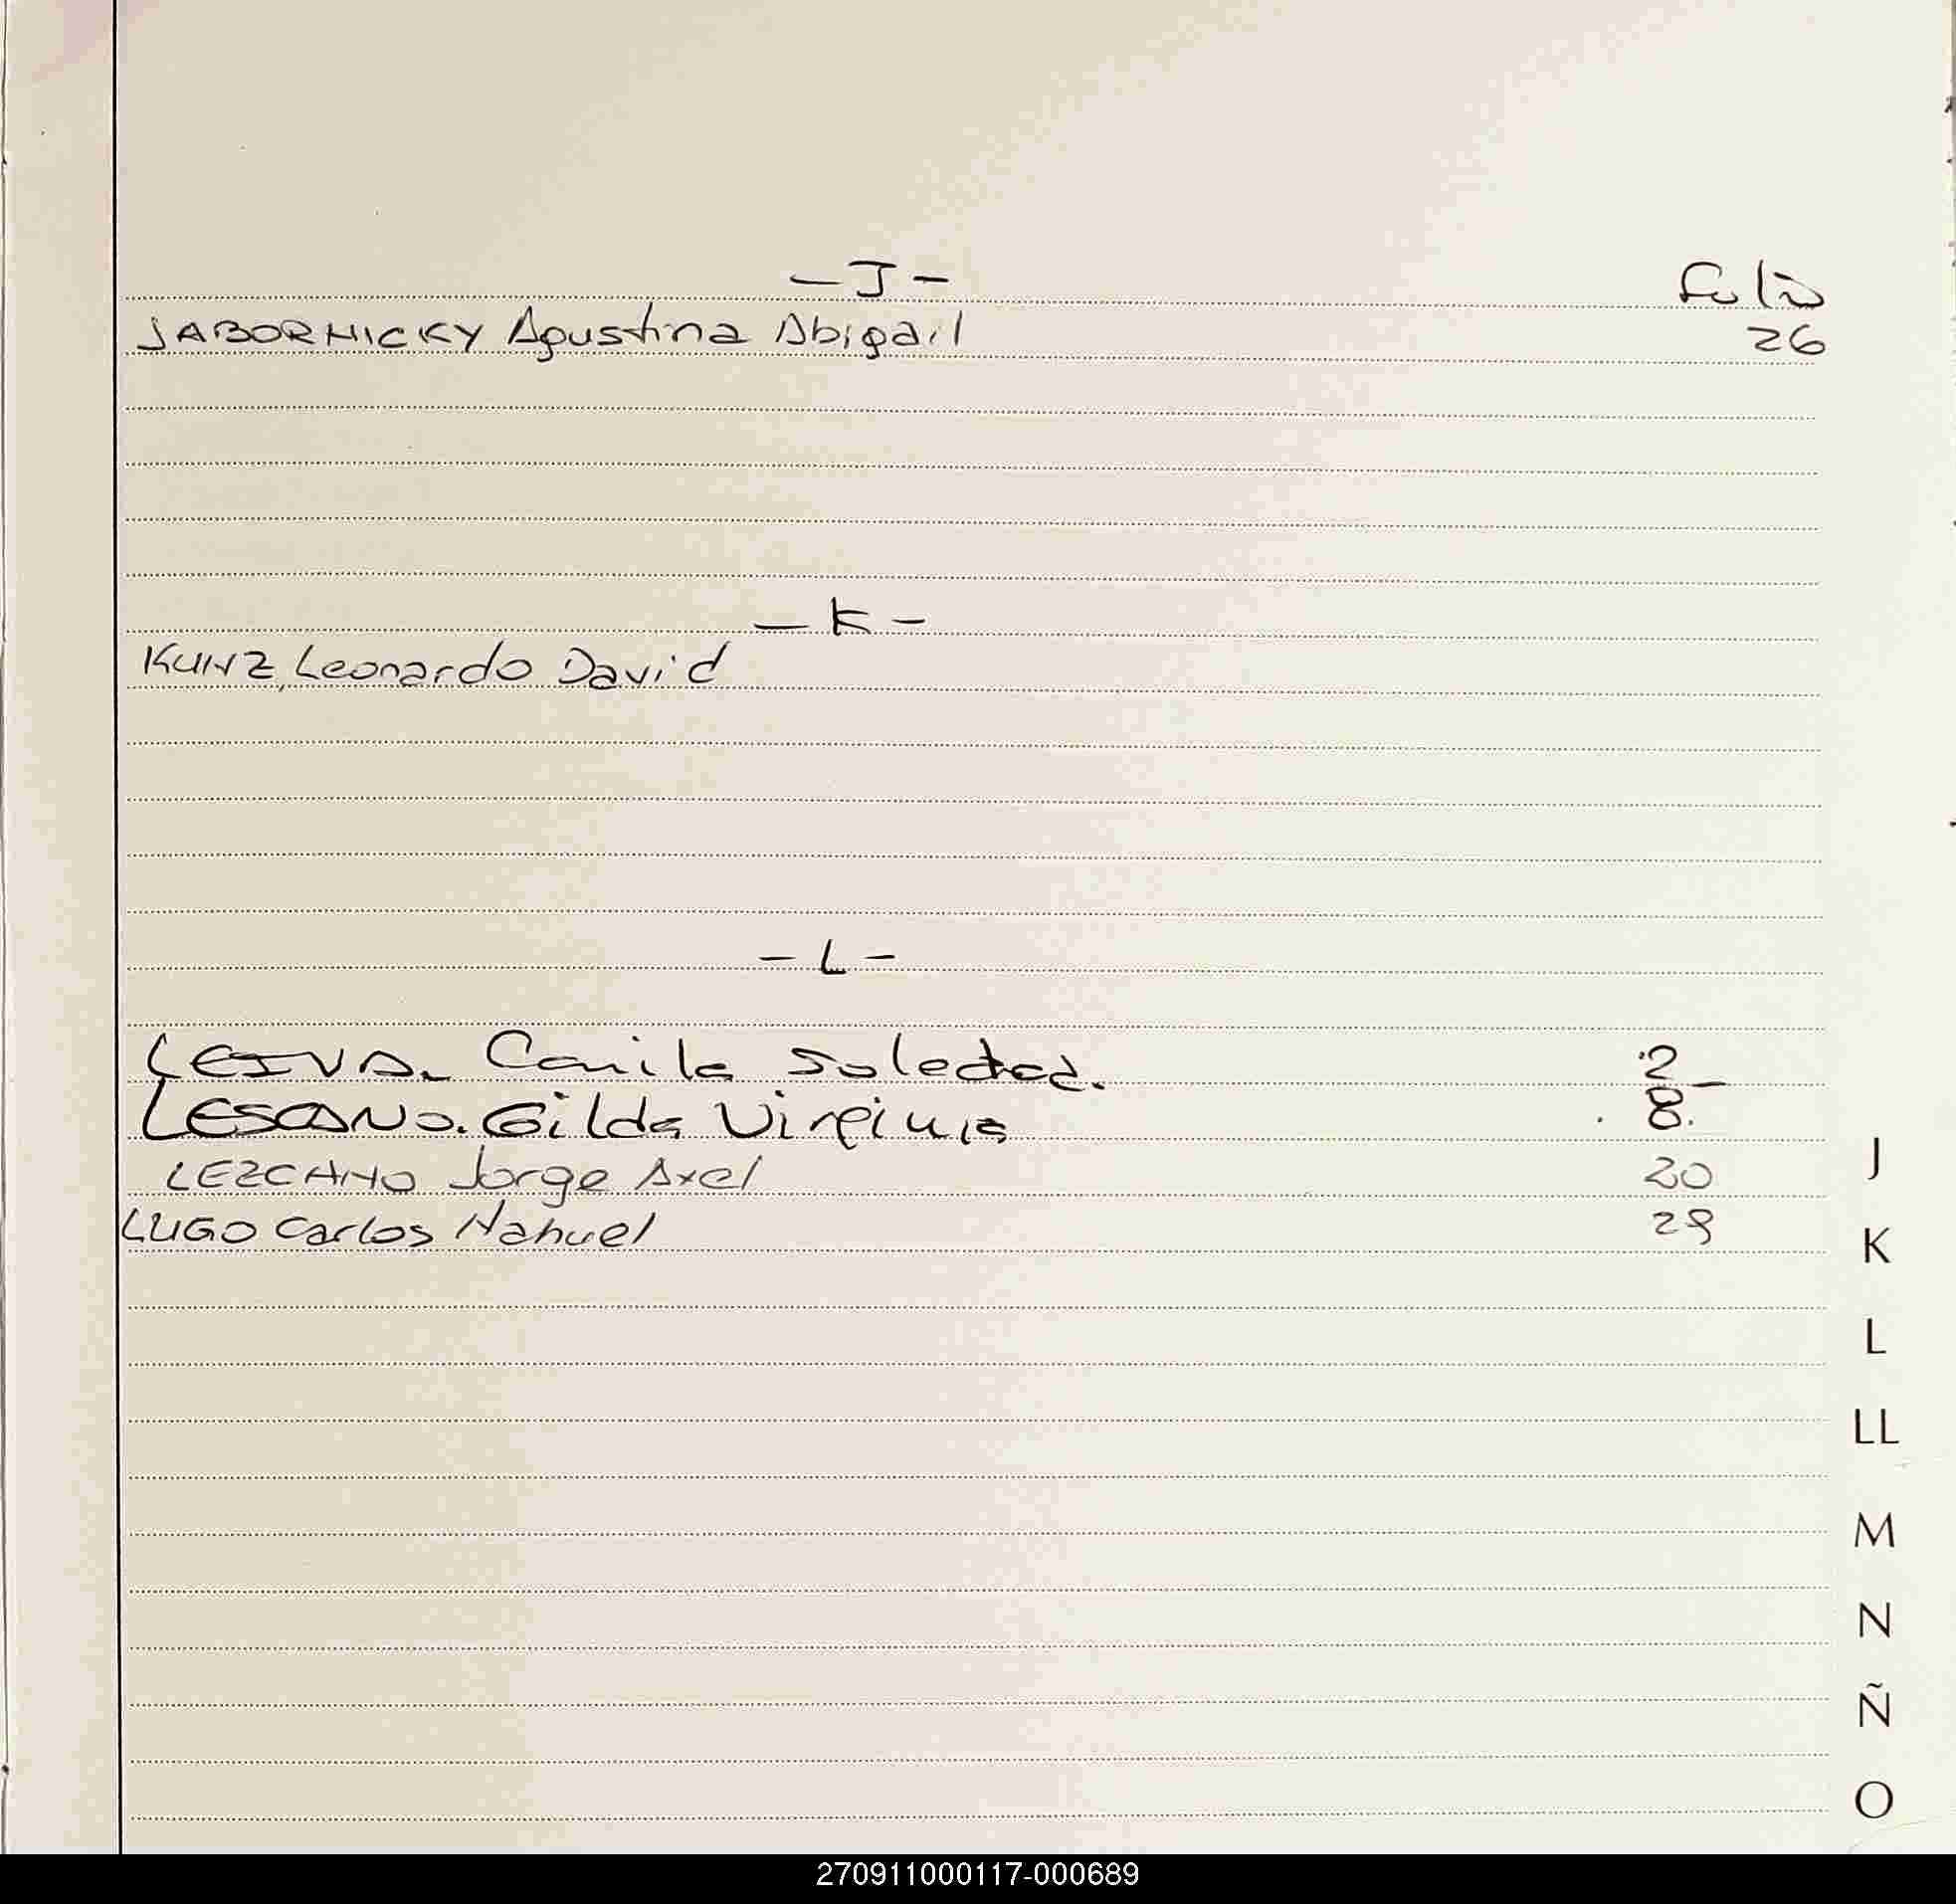 - J - Folio
JABORNICKY Agustina Abigail 26
- K -
KUNZ, Leonardo David
- L -
LEIVA. Camila Soledad. 2
LESCANO. Gilda Virginia 8.
LEZCANO Jorge Axel 20
LUGO Carlos Nahuel 29
J
K
L
LL
M
N
Ñ
O
270911000117-000689